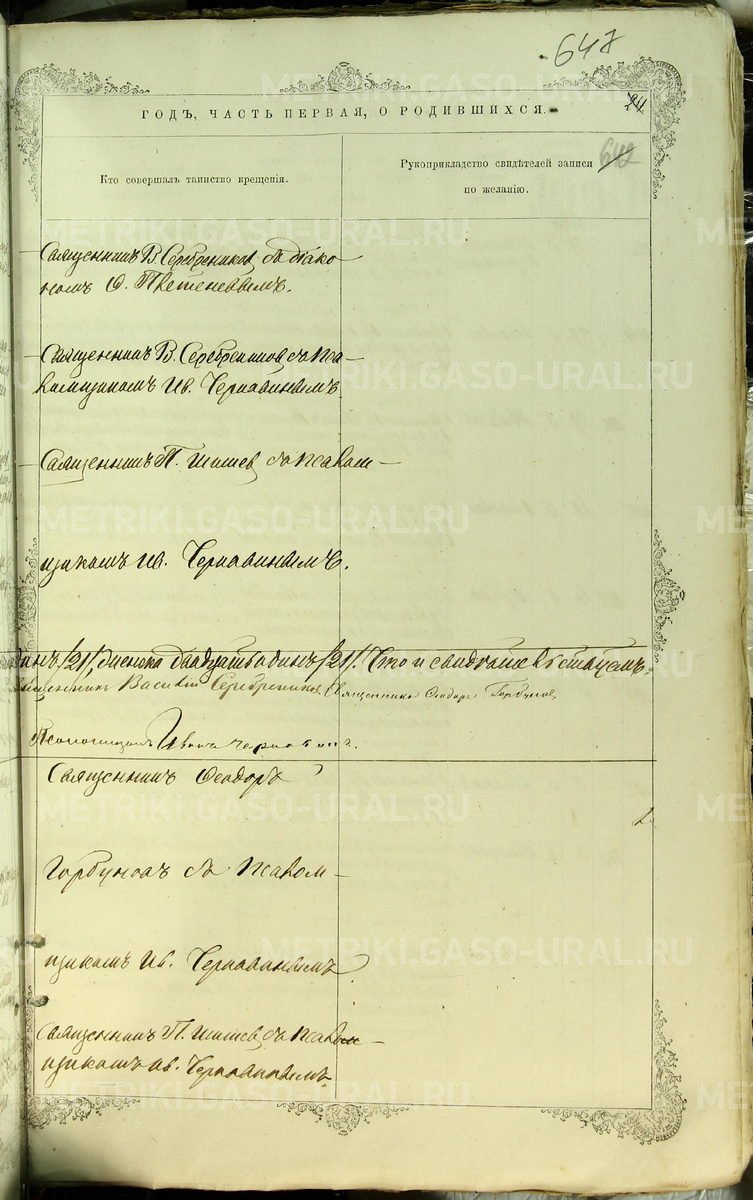 647
74
ГОДЪ, ЧАСТЬ ПЕРВАЯ, О РОДИВШИХСЯ.
642
Кто совершалъ таинство крещенія.
Рукоприкладство свидѣтелей записи
по желанію.
Священникъ В. Серебрениковъ съ діако-
номъ
Священникъ В. Серебрениковъ съ Пса-
ломщикомъ Ив. Чернавинымъ.
Священникъ П. Шишевъ съ Псалом-
щикомъ Ив. Чернавинымъ.
/21/, женска двадцать одинъ /21/. Что и свидѣтельствуемъ:
Священникъ Василій Серебрениковъ, Священникъ Ѳеодоръ Горбуновъ,
Псаломщикъ Иванъ Чернавинъ.
Священникъ Ѳеодоръ
Горбуновъ съ Псалом-
щикомъ Ив. Чернавинымъ
Священникъ П. Шишевъ съ Псалом-
щикомъ Ив. Чернавинымъ
METRIKI.GASO-URAL.RU